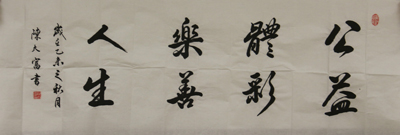 公益
體彩
樂善
人生
歲在乙未之秋月
陳大富書